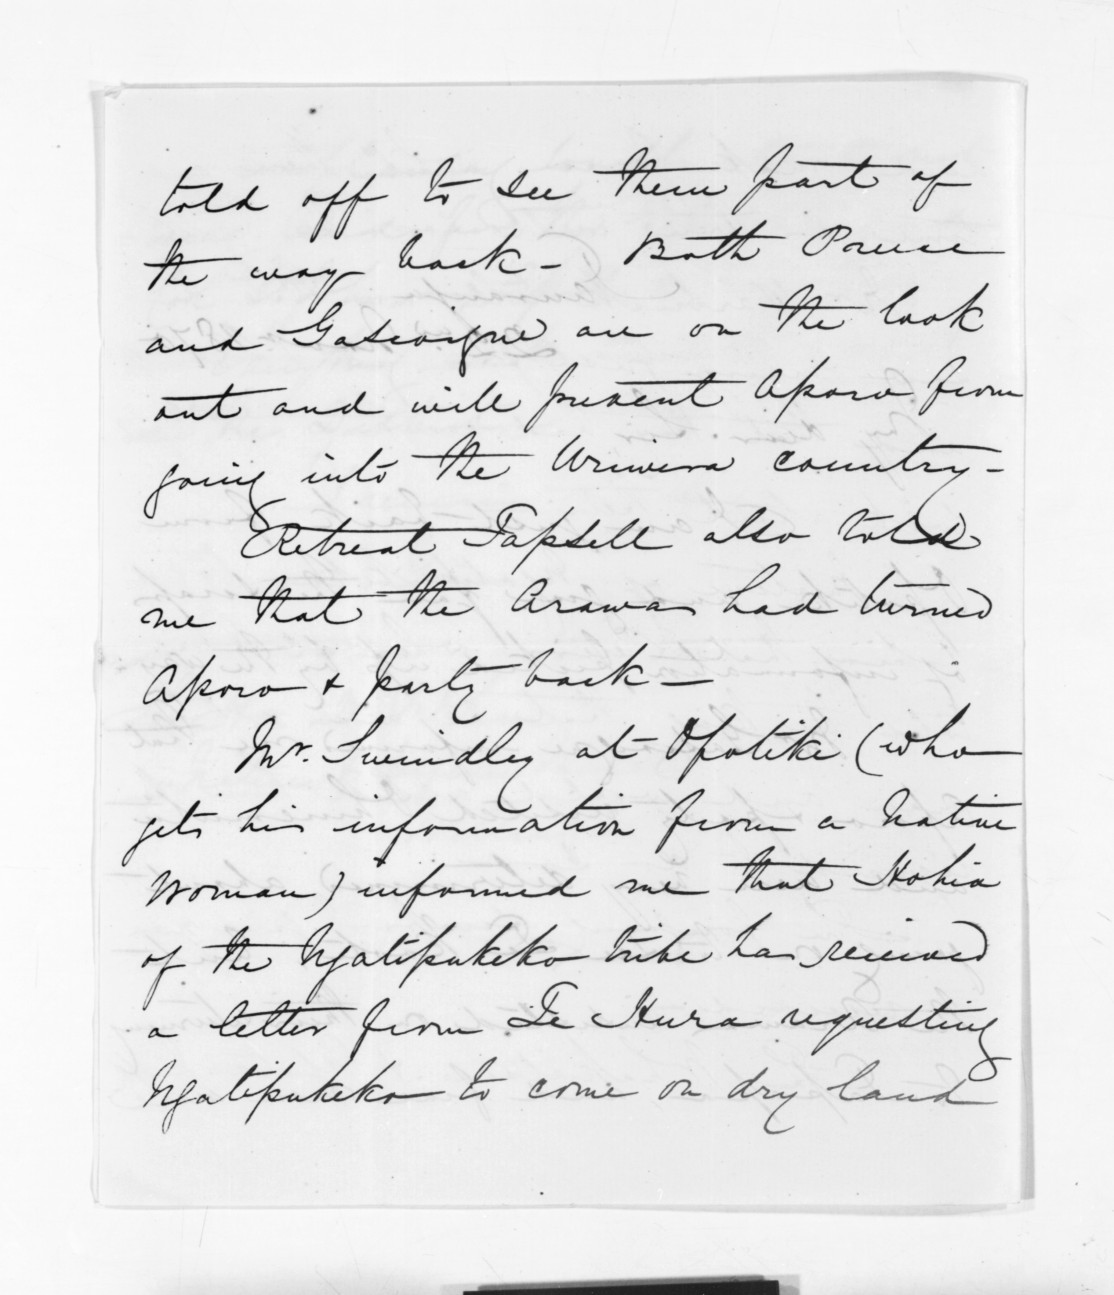 told off to see them part of
the way back - Both Preece
and Gascoigne are on the look
out and will prevent Aporo from
going into the Uriwera country -
Retreat Tapsell also told
me that the Arawas had turned
Aporo & party back -
Mr. Swindley at Opotiki (who
gets his information from a Native
Woman) informed me that Hohia
of the Ngatipukeko tribe has received
a letter from Te Hura requesting
Ngatipukeko to come on dry land